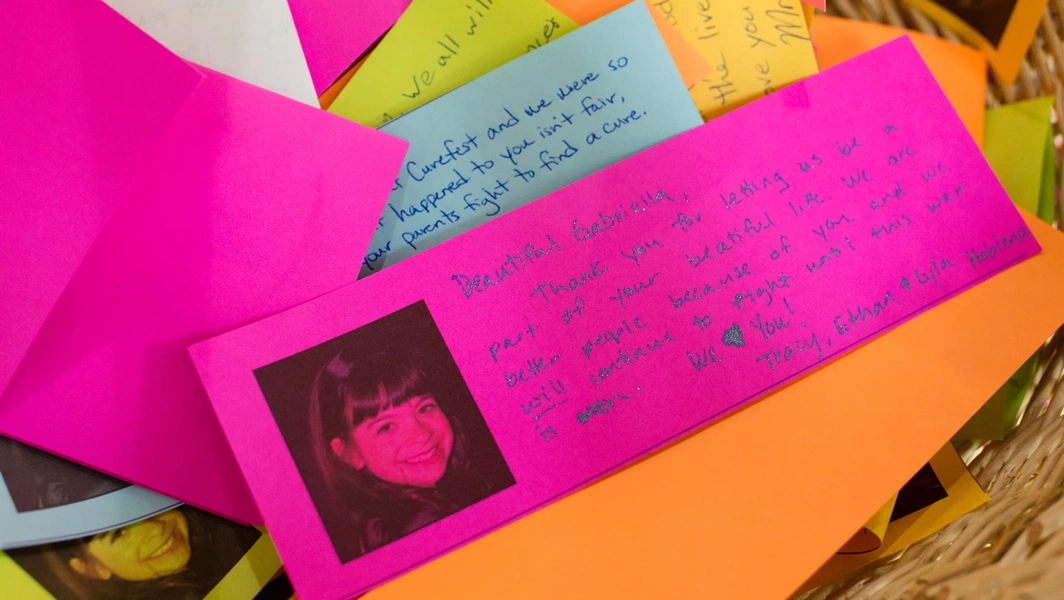 we all will
the live
ove you
Mr
Curefest and we were so
happened to you isn't fair,
your parents fight to find a cure.
Beautiful Gabriella,
Thank you for letting us be a
part of your beatiful life. We are
better people because of you and we
will continue to fight until this war
is won. We You!
Tracy, Ethan & Lyla